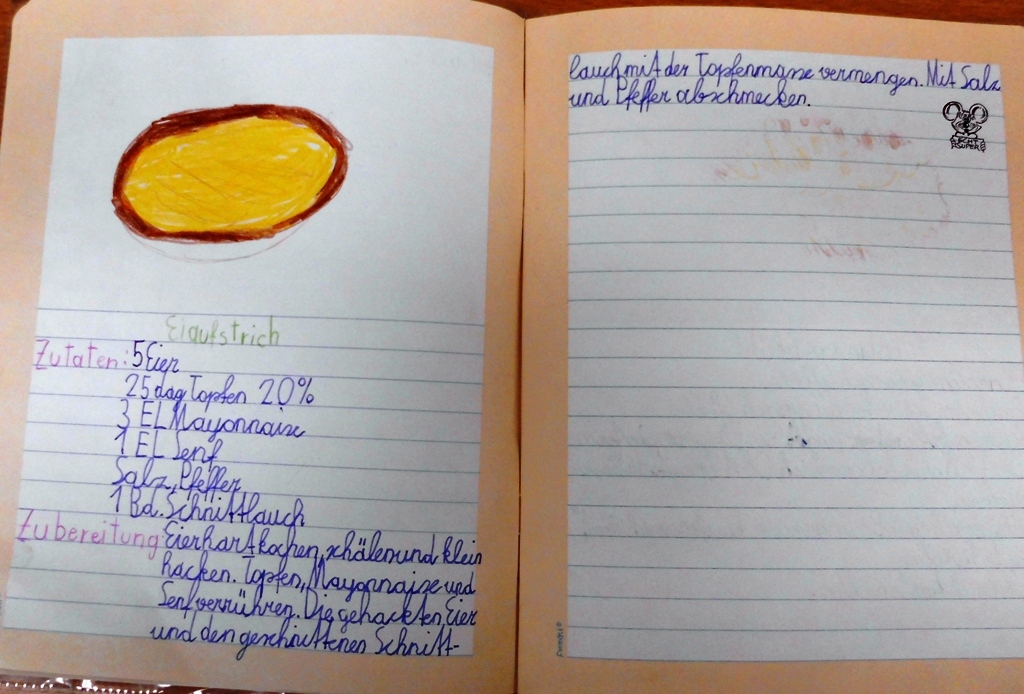 Eiaufstrich
Zutaten: 5 Eier
25 dag Topfen 20%
3 EL Mayonnaise
1 EL Senf
Salz, Pfeffer
1 Bd. Schnittlauch
Zubereitung: Eier hart kochen, schälen und klein
hacken. Topfen, Mayonnaise und
Senf verrühren. Die gehackten Eier
und den geschnittenen Schnitt-
lauch mit der Topfenmasse vermengen. Mit Salz
und Pfeffer abschmecken.
ECHT
SUPER